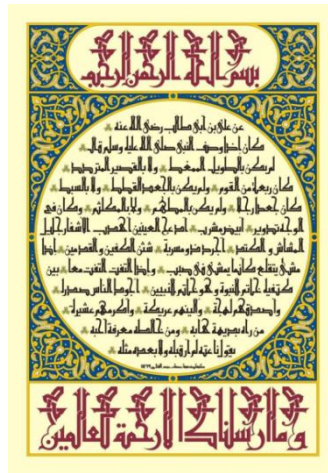 بسم الله الرحمن الرحيم
عن علي بن أبي طالب رضي الله عنه
كان إذا وصف النبي صلى الله عليه وسلم قال
لم يكن بالطويل الممغط ولا بالقصير المتردد
كان ربعة من القوم ولم يكن بالجعد القطط ولا بالسبط
كان جعدا رجلا ولم يكن بالمطهم ولا بالمكلثم وكان في
الوجه تدوير أبيض مشرب أدعج العينين أهدب الأشفار جليل
المشاش والكتد أجرد ذو مسربة شثن الكفين والقدمين إذا
مشى يتقلع كأنما يمشي في صبب وإذا التفت التفت معا بين
كتفيه خاتم النبوة وهو خاتم النبيين أجود الناس صدرا
وأصدقهم لهجة وألينهم عريكة وأكرمهم عشيرة
من رآه بديهة هابه ومن خالطه معرفة أحبه
يقول ناعته لم أر قبله ولا بعده مثله
وما أرسلناك إلا رحمة للعالمين